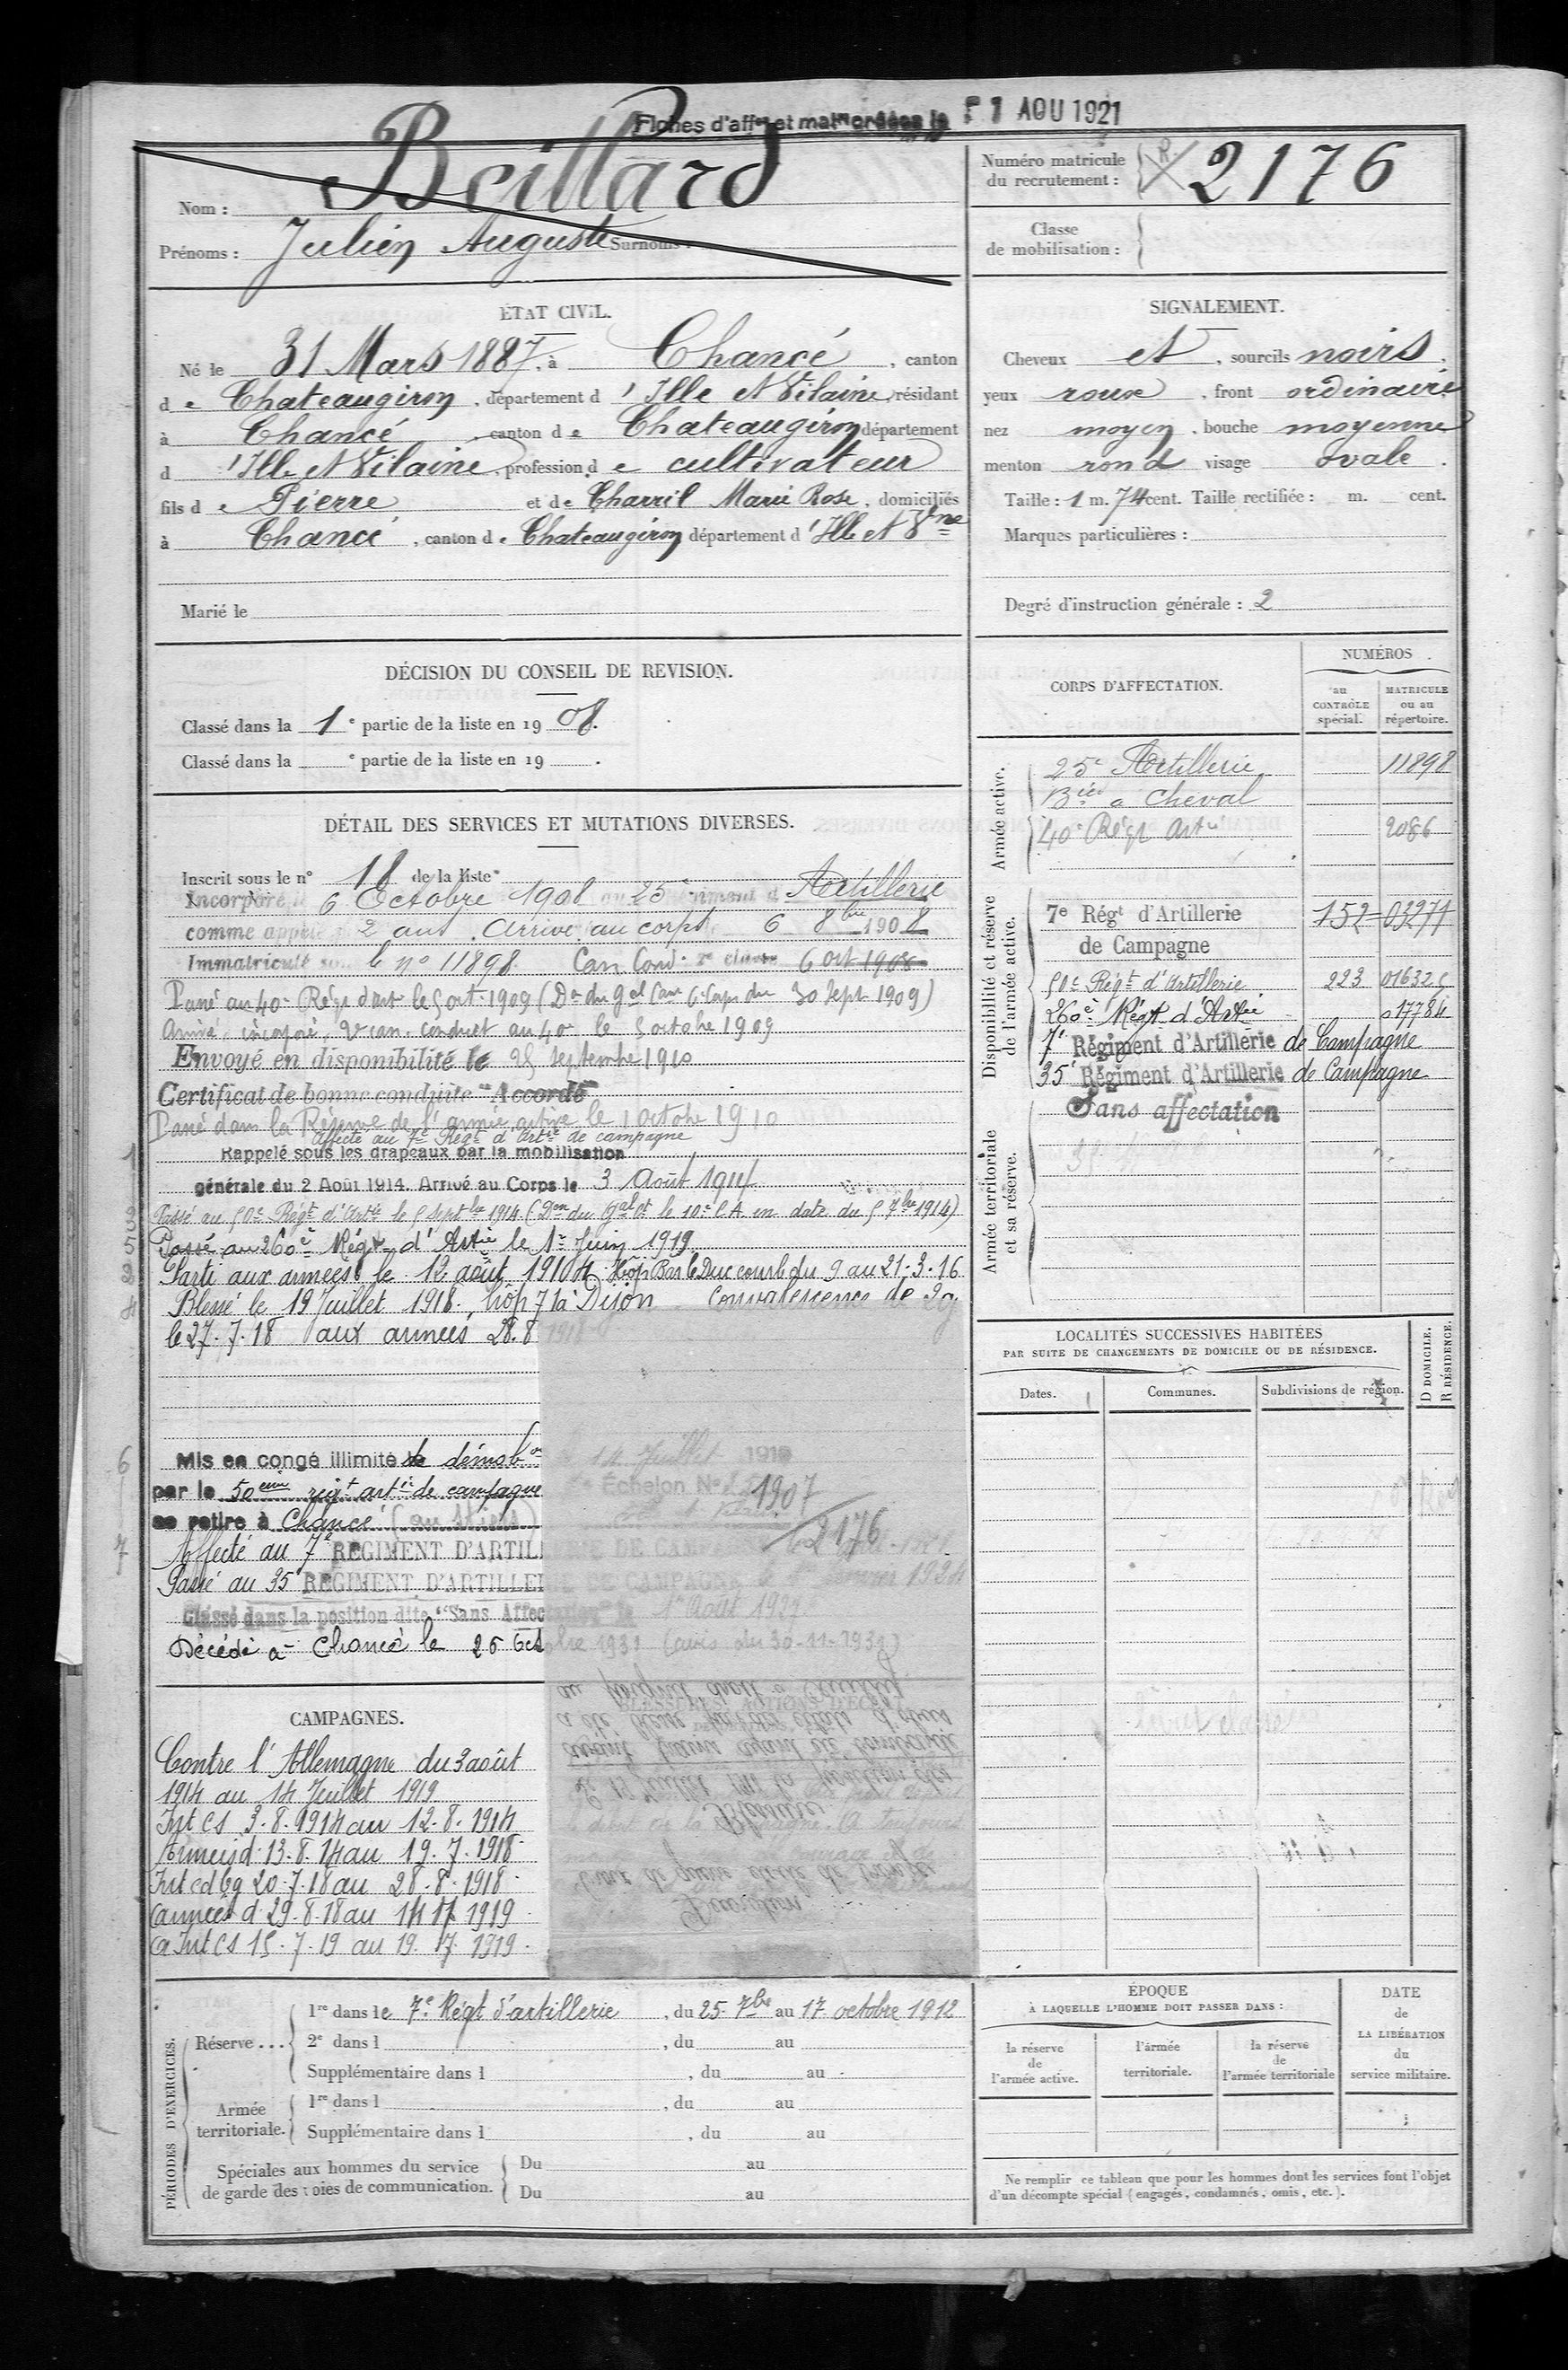 Fiches d'aff et mat créées le 1 AOU 1921
Nom : Beillard
Prénoms : Julien Auguste Surnoms :
Numéro matricule du recrutement : R 2176
Classe de mobilisation :
ÉTAT CIVIL.
Né le 31 Mars 1887, à Chancé, canton
de Chateaugiron, département d'Ille et Vilaine, résidant
à Chancé, canton de Chateaugiron département
d'Ille et Vilaine, profession de cultivateur
fils de Pierre et de Charril Marie Rose, domiciliés
à Chancé, canton de Chateaugiron département d'Ille et Vne
Marié le
SIGNALEMENT.
Cheveux et, sourcils noirs,
yeux roux, front ordinaire
nez moyen, bouche moyenne
menton rond visage ovale.
Taille : 1 m. 74 cent. Taille rectifiée : m. cent.
Marques particulières :
Degré d'instruction générale : 2
DÉCISION DU CONSEIL DE REVISION.
Classé dans la 1e partie de la liste en 1908.
Classé dans la e partie de la liste en 19 .
DÉTAIL DES SERVICES ET MUTATIONS DIVERSES.
Inscrit sous le n° 18 de la liste
Incorporé le 6 Octobre 1908 au 25e régiment d'Artillerie
comme appelé 2 ans. Arrivé au corps le 6 8bre 1908
Immatriculé sous le n° 11898 Can Cond. 2e classe 6 oct 1908
Passé au 40e Régt d'art le 5 oct. 1909 (Don du Gal Cant 6e Corps du 30 Sept 1909)
Arrivé, incorporé, 2e can. conduct au 40e le 5 octobre 1909
Envoyé en disponibilité le 25 septembre 1910
Certificat de bonne conduite "Accordé"
Passé dans la Réserve de l'armée active le 1 octobre 1910
Affecté au 7e Régt d'Artie de campagne
Rappelé sous les drapeaux par la mobilisation
générale du 2 Août 1914. Arrivé au Corps le 3 Août 1914
Passé au 50e Régt d'Artie le 5 Septbre 1914 (Don du Gal Ct le 10e CA en date du 5 7bre 1914)
Passé au 260e Régt d'Artie le 1er Juin 1919
Parti aux armées le 12 août 1914 Hôp Bar le Duc courb du 9 au 21-3-16
Blessé le 19 Juillet 1918. hôp 71 à Dijon Convalescence de 29
le 27-7-18 aux armées 28.8 1918
Mis en congé illimité de démobon le 14 Juillet 1919
par le 50eme régt artie de campagne Échelon N°
se retire à Chancé
1907
2176
Affecté au 7e RÉGIMENT D'ARTILLERIE DE CAMPAGNE
Passé au 35e RÉGIMENT D'ARTILLERIE DE CAMPAGNE 1924
Classé dans la position dite "Sans Affectation" le 1er Août 1927
Décédé à Chancé le 26 Octobre 1931 (avis du 30-11-1931)
CAMPAGNES.
Contre l'Allemagne du 3 août
1914 au 14 Juillet 1919
Int CS 3.8.1914 au 12.8.1914
Armées d. 13.8.14 au 19.7.1918
Int cd bg 20.7.18 au 28.8.1918
Armées d. 29.8.18 au 14 17 1919
Int CS 15.7.19 au 19.7.1919
CORPS D'AFFECTATION.
NUMÉROS
au CONTRÔLE spécial.
MATRICULE ou au répertoire.
Armée active.
25e Artillerie 11898
Bies à Cheval
40e Régt Artie 2086
Disponibilité et réserve de l'armée active.
7e Régt d'Artillerie de Campagne 152 03271
50e Régt d'Artillerie 223 016325
260e Régt d'Artie 017784
7e Régiment d'Artillerie de Campagne
35e Régiment d'Artillerie de Campagne
Sans affectation
Armée territoriale et sa réserve.
LOCALITÉS SUCCESSIVES HABITÉES
PAR SUITE DE CHANGEMENTS DE DOMICILE OU DE RÉSIDENCE.
Dates. Communes. Subdivisions de région. D DOMICILE. R RÉSIDENCE.
PÉRIODES D'EXERCICES.
Réserve... 1re dans le 7e Régt d'artillerie, du 25 7bre au 17 octobre 1912
2e dans l , du au
Supplémentaire dans l , du au
Armée territoriale. 1re dans l , du au
Supplémentaire dans l , du au
Spéciales aux hommes du service de garde des voies de communication. Du au
Du au
ÉPOQUE
À LAQUELLE L'HOMME DOIT PASSER DANS :
la réserve de l'armée active.
l'armée territoriale.
la réserve de l'armée territoriale
DATE de LA LIBÉRATION du service militaire.
Ne remplir ce tableau que pour les hommes dont les services font l'objet
d'un décompte spécial (engagés, condamnés, omis, etc.).